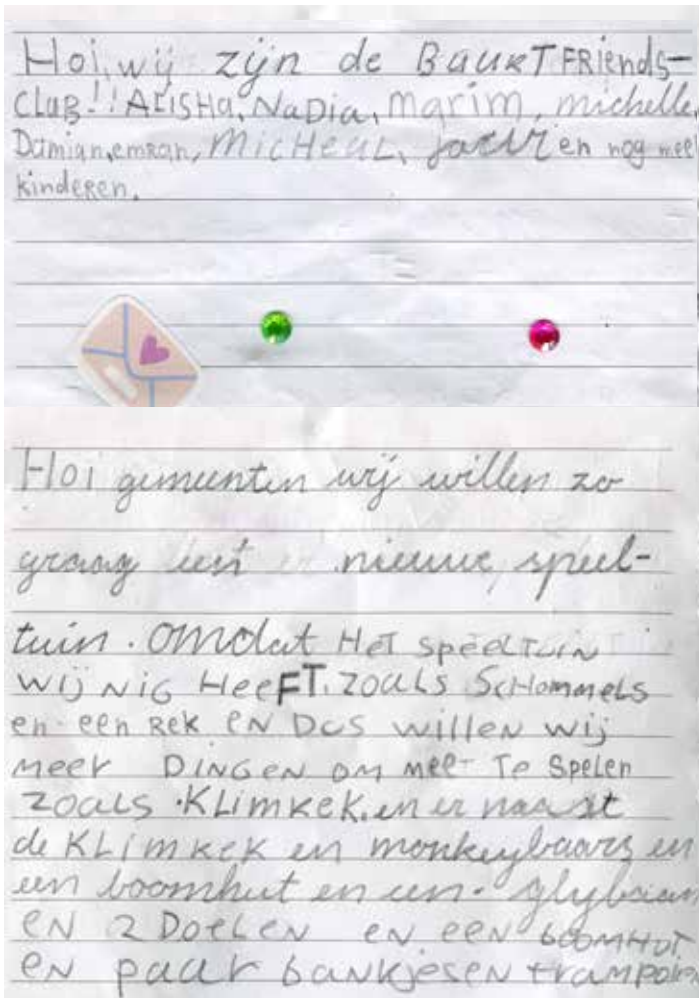 Hoi, wij zijn de BauRTFRiends-
CLUB!! ALISHA, NaDia, Marim, michelle
Damian, emran, MicHeaL, en nog mee
kindeRen.
Hoi gemeenten wij willen zo
graag een nieuwe speel-
tuin. omdat Het speeltuin
wij NiG HeeFT. zoals ScHommels
en een Rek eN Dus willen wij
meer DiNGeN om mee Te Spelen
zoals KLimRek. en er naast
de KLimRek en monkeybaars en
een boomhut en een glybaan
eN 2 DoeLeN eN eeN boomHuT
eN paar bankjes en trampolin